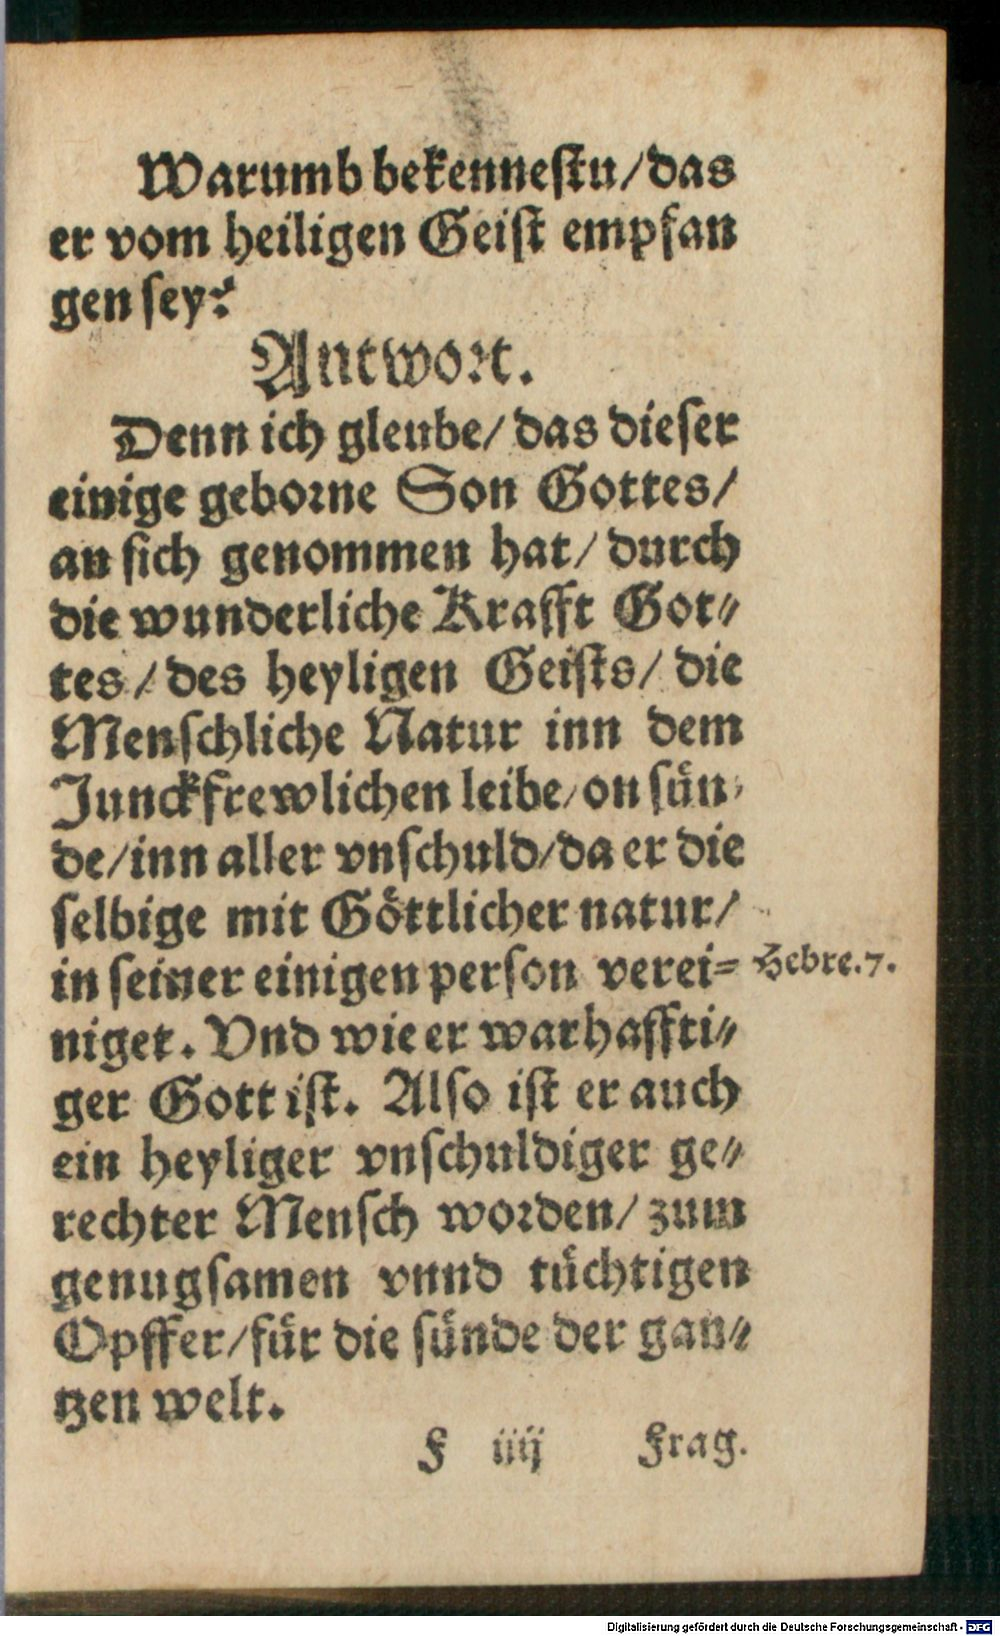 Warumb bekennestu/das
er vom heiligen Geist empfan
gen sey?
Antwort.
Denn ich gleube/ das dieser
einige geborne Son Gottes/
an sich genommen hat/ durch
die wunderliche Krafft Got⸗
tes/ des heyligen Geists/ die
Menschliche Natur inn dem
Junckfrewlichen leibe/ on sün⸗
de/inn aller vnschuld/da er die
selbige mit Göttlicher natur/
in seiner einigen person verei⸗
Hebre.7.
niget. Vnd wie er warhaffti⸗
ger Gott ist. Also ist er auch
ein heyliger vnschuldiger ge⸗
rechter Mensch worden/ zum
genugsamen vnnd tüchtigen
Opffer/für die sünde der gan⸗
tzen welt.
F iiij Frag.
Digitalisierung gefördert durch die Deutsche Forschungsgemeinschaft - DFG